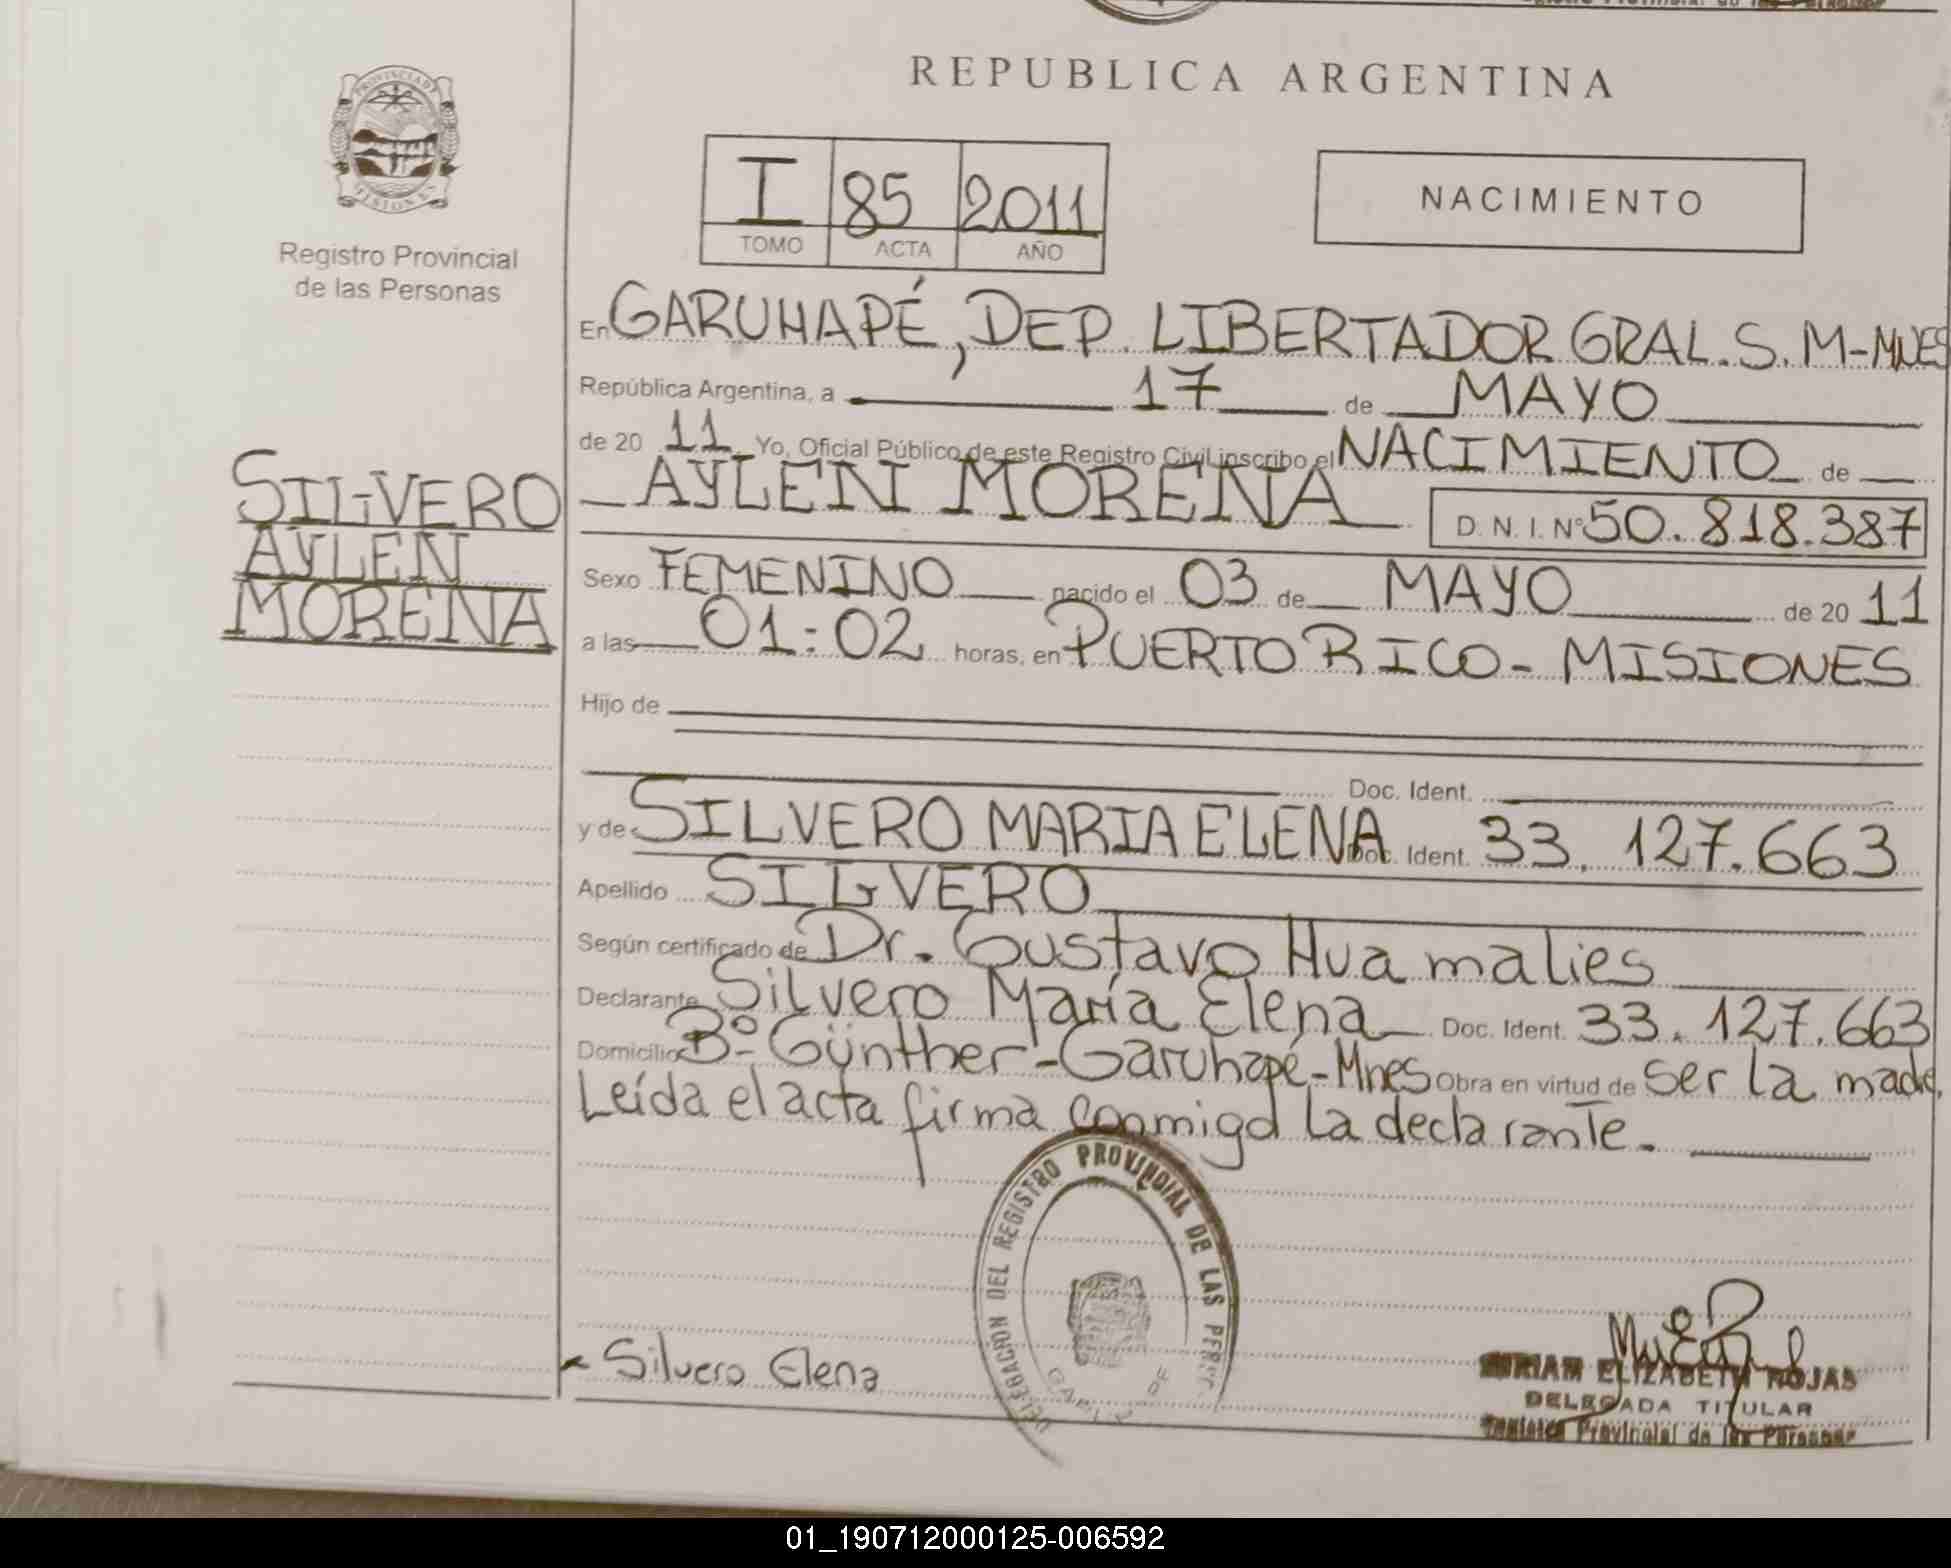 REPUBLICA ARGENTINA
PROVINCIA DE
MISIONES
Registro Provincial
de las Personas
I 85 2011
TOMO ACTA AÑO
NACIMIENTO
En GARUHAPÉ, DEP. LIBERTADOR GRAL. S. M-MNES
República Argentina, a 17 de MAYO
de 20 11 Yo, Oficial Público de este Registro Civil inscribo el NACIMIENTO de
SILVERO
AYLEN
MORENA
AYLEN MORENA D. N. I. Nº 50.818.387
Sexo FEMENINO nacido el 03 de MAYO de 20 11
a las 01:02 horas, en PUERTO RICO - MISIONES
Hijo de
Doc. Ident.
y de SILVERO MARIA ELENA Doc. Ident. 33.127.663
Apellido SILVERO
Según certificado de Dr. Gustavo Huamalies
Declarante Silvero María Elena Doc. Ident. 33.127.663
Domicilio Bº Günther - Garuhapé - Mnes Obra en virtud de ser la madre.
Leída el acta firma conmigo la declarante.
DELEGACION DEL REGISTRO PROVINCIAL DE LAS
Silvero Elena
MIRIAM ELIZABETH ROJAS
DELEGADA TITULAR
Registro Provincial de las Personas
01_190712000125-006592